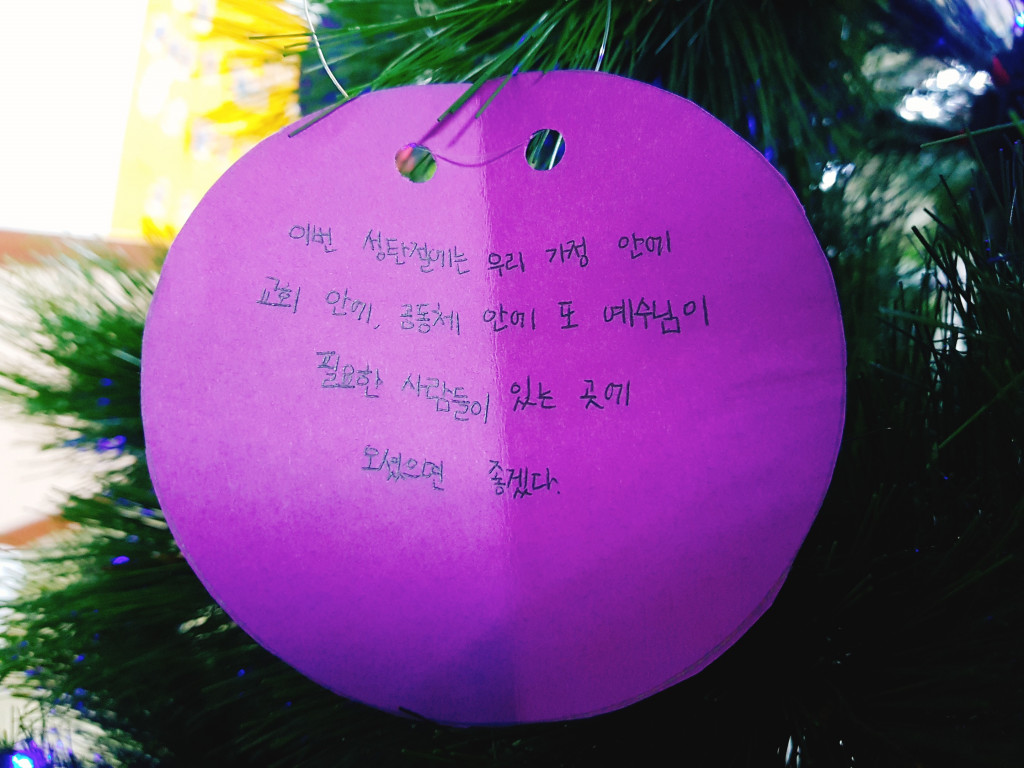 이번 성탄절에는 우리 가정 안에
교회 안에, 공동체 안에 또 예수님이
필요한 사람들이 있는 곳에
오셨으면 좋겠다.